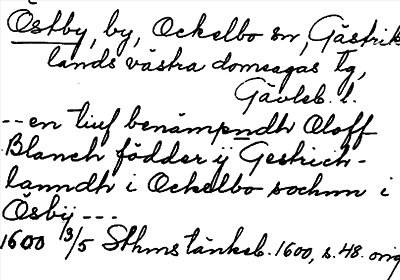 Östby, by, Ockelbo sn, Gästrik-
lands västra domsagas tg,
Gävleb. l.
--en tiuf benämpndh Oloff
Blanch födder ÿ Gestrich-
lanndh i Ockelbo sochnn i
Ösbÿ ---
1600 3/5 Sthms tänkeb. 1600, s. 48. orig